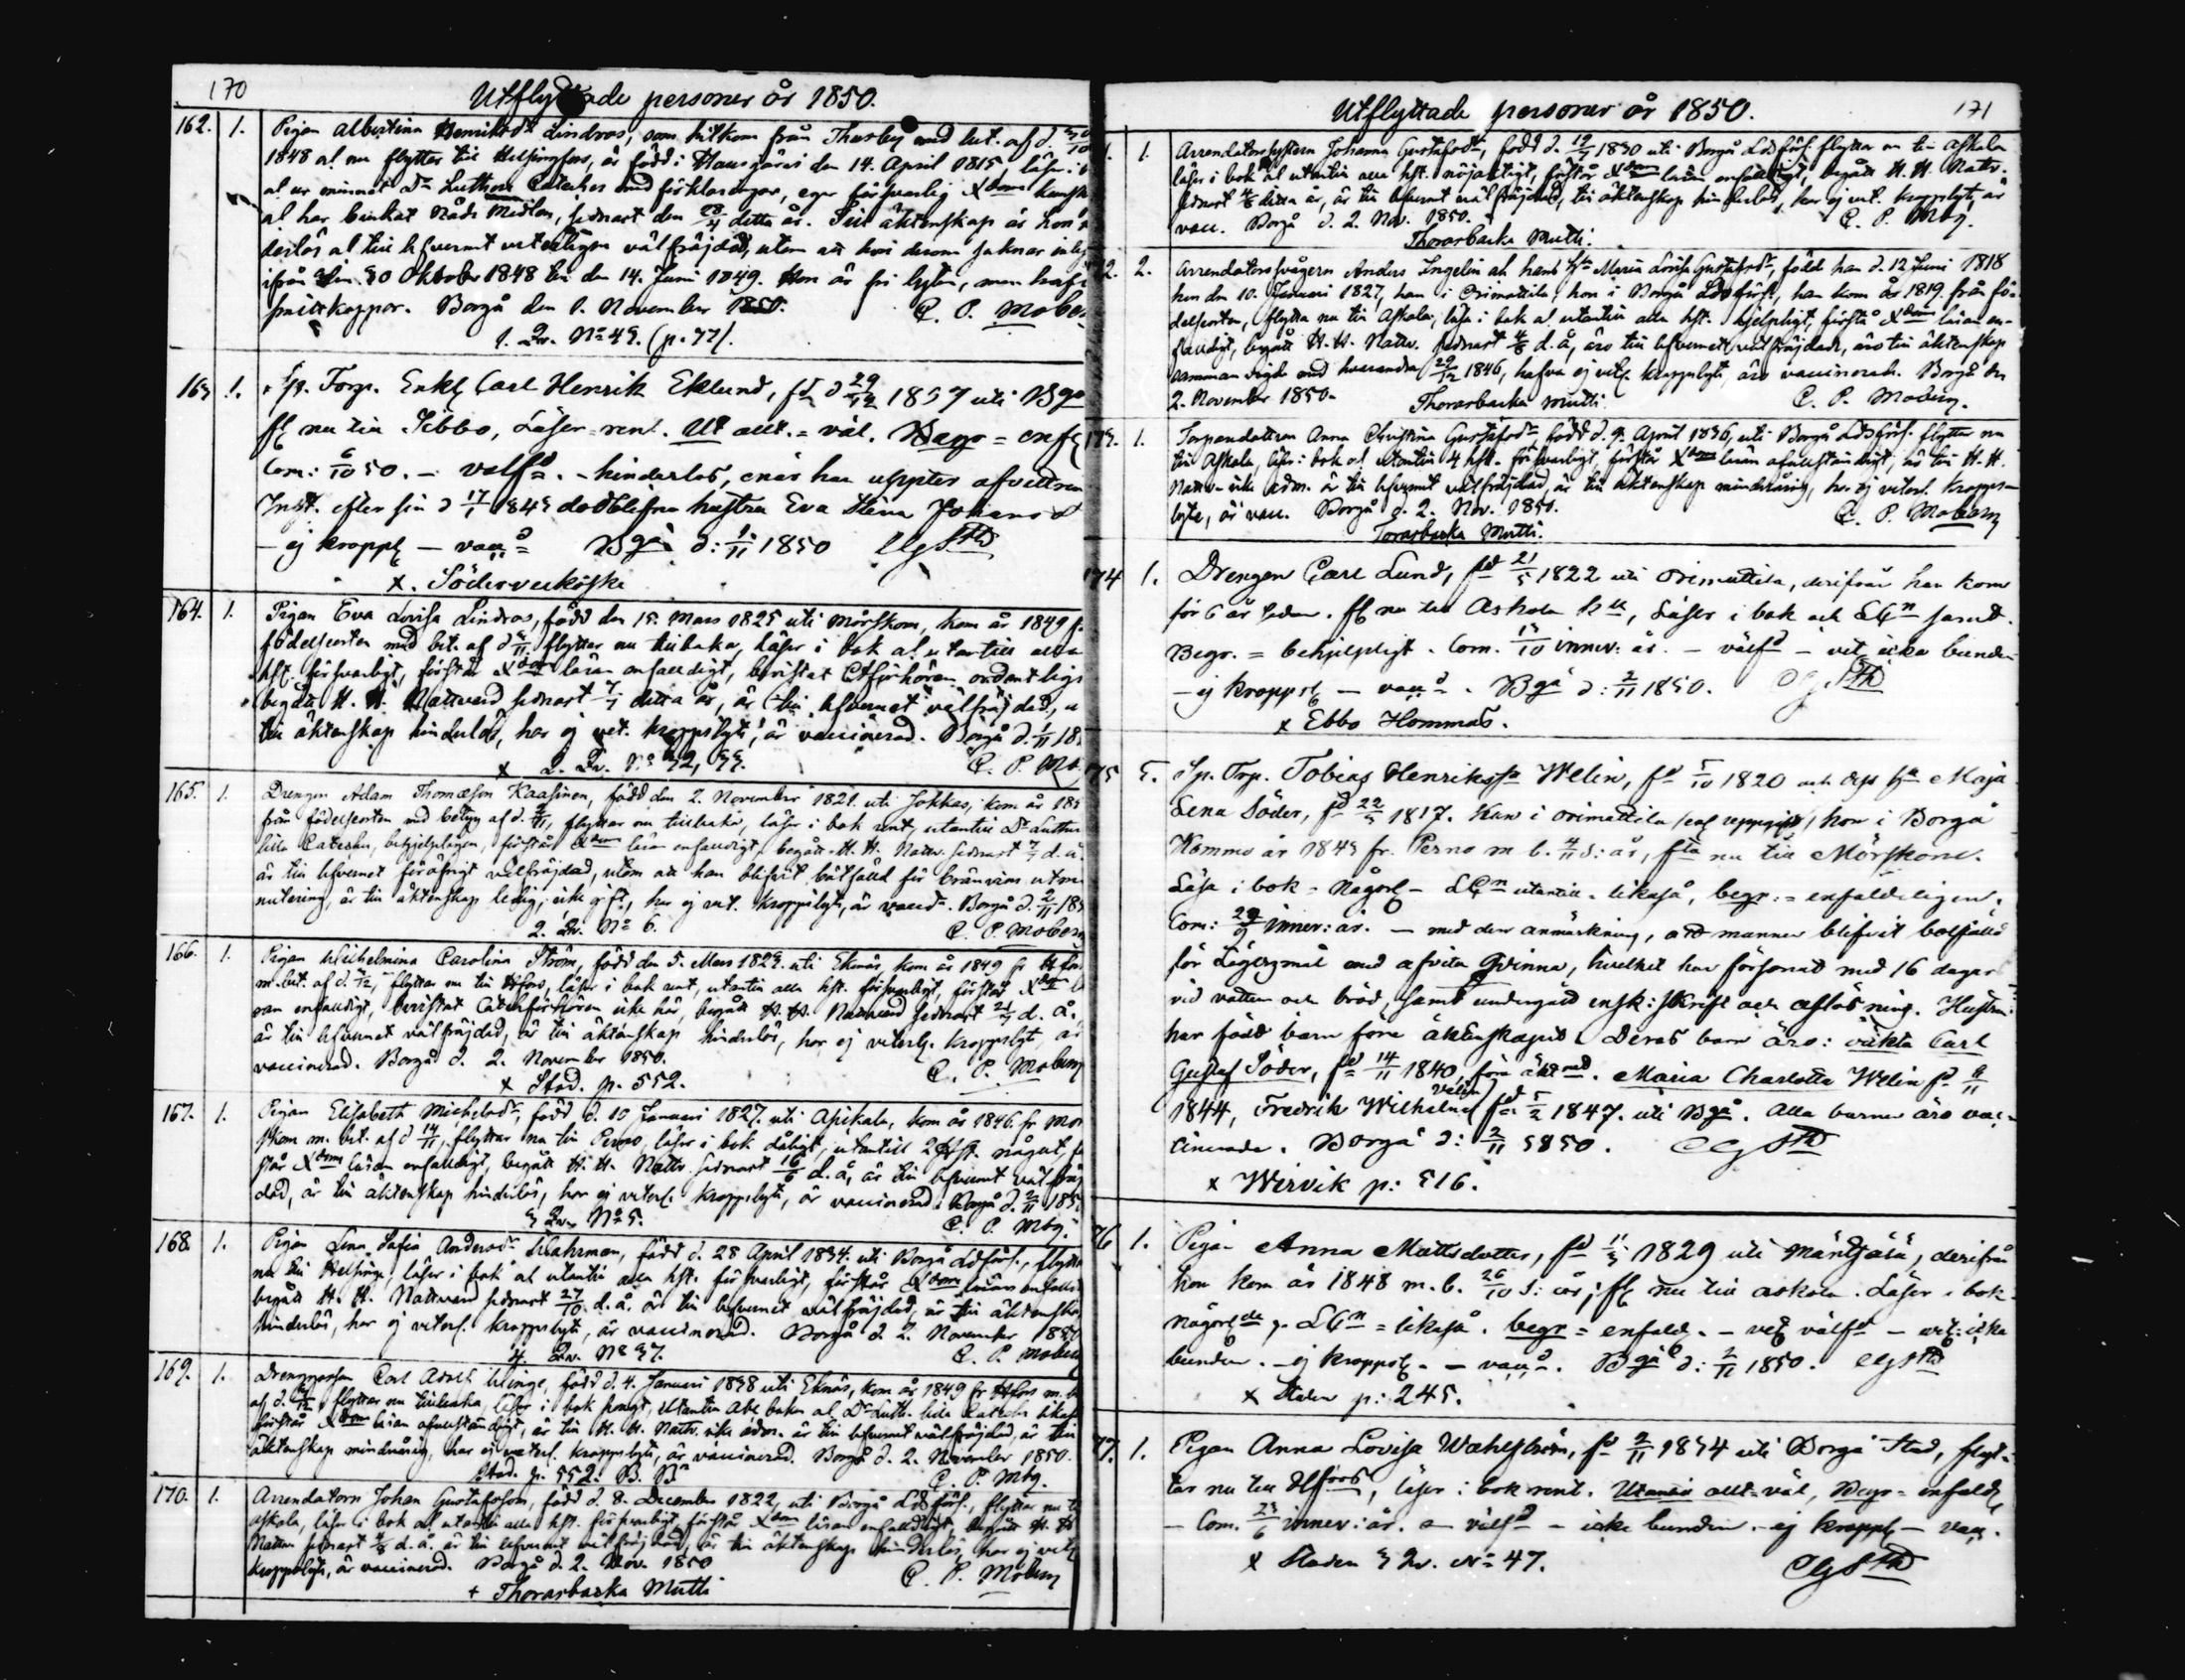 170
Utflyttade personer år 1850.
162. 1. Pigan Albertina Henriksdr Lindros, som hitkom från Thusby med bet. af d. 30/10
1848 al nu flyttar till Helsingfors, är född i Hausjärvi den 14. April 1815 läser i
al ur minnet Dr Luthers Cateches med förklaringar, eger försvarlig Xdoms kunsk
al har bevistat Nåds Medlen, sednast den 28/4 detta år. Till äktenskap är hon
derlös al till lefvernet veterligen välfräjdad, utom att hon derom saknar intyg
ifrån den 30 Oktober 1848 till den 14. Juni 1849. Hon är fri lyten, men haft
smittkoppor. Borgå den 1. November 1850. C. P. Mober
1. Qv. No 49. (p. 77).
163 1. Torp. Enkl Carl Henrik Eklund, fd d 29/12 1807 uti Bgo
fl nu till Sibbo, Läser = rent. Ut allt. = väl. Begr = enf
Com: 6/10 50. – välfd. – hinderlös, enär han uppter afvittrin
Inst. efter sin d 17/1 1849 dödblefne hustru Eva Stina Johansd
– ej kroppl – vaccd Bgå d: 1/11 1850 CGSth
x. Söderveckoski
164. 1. Pigan Eva Lovisa Lindros, född den 15. Mars 1825 uti Mörskom, kom år 1849 f.
födelseorten med bet. af d /11 flyttar nu tillbaka, läser i bok al utantill alla
hst. försvarligt, förstår Xdoms läran enfalldigt, bevistat Ctförhören ordentligt
begått H. H. Nattvard sednast /7 detta år, är till lefvernet välfräjdad,
till äktenskap hinderlös, har ej vet. kroppslyte, är vaccinerad. Borgå d. 1/11 18
x 2. Qv. No 32, 33. C. P. Mb
165. 1. Drengen Adam Thomæson Kaasinen, född den 2. November 1821. uti Jokkas, kom år 185
från födelseorten med betyg af d. /11, flyttar nu tillbaka, läser i bok rent, utantill Dr Luthers
lilla Cateches, behjelpligen, förstår Xdoms läran enfalldigt, begått H. H. Nattv. sednast /7 d. å.
är till lefvernet föröfrigt välfräjdad, utom att han blifvit bötfälld för bränvins utmi
nutering, är till äktenskap ledig, icke gift, har ej vet. kroppslyte, är vaccd. Borgå d. 2/11 185
2. Qv. No 6. C. P. Moberg
166. 1. Pigan Wilhelmina Carolina Ström, född den 5. Mars 1829. uti Ekenäs, kom år 1849 fr Hfors
m bet. af d. /12, flyttar nu till Hfors, läser i bok rent, utantill alla hst. försvarligt, förstår Xdoms
ran enfalldigt, bevistat Catechförhören icke här, begått H. H. Nattvard sednast d. å.
är till lefvernet välfräjdad, är till äktenskap hinderlös, har ej veterl. kroppslyte, är
vaccinerad. Borgå d. 2. November 1850. C. P. Moberg
x Stad. p. 552.
167. 1. Pigan Elisabeth Michelsdr, född d. 10 Januari 1827. uti Apikala, kom år 1846. fr Mör
skom m. bet. af d 14/11, flyttar nu till Perno, läser i bok dåligt, utantill 2 Hst. något, för
står Xdoms läran enfalldigt, begått H. H. Nattv. sednast 16/6 d. å, är till lefvernet välfräj
dad, är till äktenskap hinderlös, har ej veterl. kroppslyte, är vaccinerad. Borgå d. 2/11 1850
3 Qv. No 5. C. P. Mbg.
168. 1. Pigan Lena Sofia Andersdr Wahrman, född d. 28 April 1834. uti Borgå Ldsförs., flyttar
nu till Helsinge, läser i bok al utantill alla hst. försvarligt, förstår Xdoms läran enfalld
begått H. H. Nattvard sednast 27/10. d. å. är till lefvernet välfräjdad, är till äktenskap
hinderlös, har ej veterl. kroppslyte, är vaccinerad. Borgå d. 2. November 1850
4. Qv. No 37. C. P. Moberg
169. 1. Drenggossen Carl Adolf Winge, född d. 4. Januari 1838 uti Ekenäs, kom år 1849 fr Hfors m. b
af d. /12, flyttar nu tillbaka, läser i bok svagt, utantill Abc boken al Dr Luth. lilla Cateches likaså
förstår Xdoms läran ofullständigt, är till H. H. Nattv. icke adm. är till lefvernet välfräjdad, är till
äktenskap minderårig, har ej veterl. kroppslyte, är vaccinerad. Borgå d. 2. November 1850.
Stad. p. 552. C. P. Mbg.
170. 1. Arrendatorn Johan Gustafsson, född d. 8. December 1822, uti Borgå Ldsförs., flyttar nu t
Askola, läser i bok al utantill alla hst. försvarligt, förstår Xdoms läran enfalldigt, begått H. H.
Nattv. sednast 4/8 d. å. är till lefvernet välfräjdad, är till äktenskap hinderlös, har ej vetl
kroppslyte, är vaccinerad. Borgå d. 2. Nov. 1850 C. P. Moberg
+ Thorasbacka Mutti
Utflyttade personer år 1850. 171
1. 1. Arrendatorsystern Johanna Gustafsdr, född d. 19/7 1830 uti Borgå Ldsförs. flyttar nu till Askola
läser i bok al utantill alla hst. nöjaktigt, förstår Xdoms läran enfalldigt, begått H. H. Nattv.
sednast 4/8 detta år, är till lefvernet välfräjdad, till äktenskap hinderlös, har ej vet. kroppslyte, är
vacc. Borgå d. 2. Nov. 1850. C. P. Mbg.
Thorasbacka Mutti.
72. 2. Arrendatorsvågern Anders Ingelin ah hans hu Maria Lovisa Gustafsdr, född han d. 12 Juni 1818
hon den 10. Januari 1827, han i Orimattila, hon i Borgå Ldsförs., han kom år 1819. från fö-
delseorten, flytta nu till Askola, läsa i bok al utantill alla hst. hjelpligt, förstå Xdoms läran en-
falldigt, begått H. H. Nattv. sednast 4/8 d. å, äro till lefvernet välfräjdade, äro till äktenskap
samman vigde med hvarandra 29/12 1846, hafva ej vetl. kroppslyte, äro vaccinerade. Borgå den
2. November 1850. Thorasbacka Mutti. C. P. Moberg.
173. 1. Torpardottren Anna Christina Gustafsdr, född d. 9. April 1836, uti Borgå Ldsförs. flyttar nu
till Askola, läser i bok al utantill 4 hst. försvarligt, förstår Xdoms läran ofullständigt, är till H. H.
Nattv. icke adm. är till lefvernet välfräjdad, är till äktenskap minderårig, har ej veterl. kropps-
lyte, är vacc. Borgå d. 2. Nov. 1850. C. P. Moberg
Torasbacka Mutti.
174 1. Drengen Carl Lund, fd 21/5 1822 uti Orimattila, derifrån han kom
för 6 år sedan. fl nu till Askola k, Läser i bok och LCn samt.
Begr. = behjelpligt. Com. 13/10 innev: år. – välfd – vet. icke bunden
– ej kroppsl – vaccd. Bgå d: 2/11 1850. CGSth
x Ebbo Hommas.
75 5. Sp. Trp. Tobias Henrikss Welin, fd 5/10 1820 och dess hu Maja
Lena Söder, fd 22/5 1817. Han i Orimattila /enl uppgift/ hon i Borgå
Kommo år 1849 fr. Perno m b. 4/11 s: år, fta nu till Mörskom.
Läsa i bok = någorl – LCn utantill = likaså, begr: = enfaldeligen.
Com: 29/9 innev: år. – med den anmärkning, att mannen blifvit bötfälld
för Lägersmål med afvita Qvinna, hvilket han försonat med 16 dagar
vid vatten och bröd, samt undergått ensk: skrift och aflösning. Hustrun
har född barn före äktenskapet. Deras barn äro: oäkta Carl
Gustaf Söder, fd 14/11 1840, före äktned. Maria Charlotta Welin fd 8/11
1844, Fredrik Wilhelm Velin fd 5/2 1847. uti Bgå. Alla barnen äro vac-
cinerade. Borgå d: 2/11 1850. CGSth
x Wirvik p: 516.
76 1. Pigan Anna Mattsdotter, fd 11/3 1829 uti Mäntsälä, derifrån
hon kom år 1848 m. b. 26/10 s: år; fl nu till Askola. Läser i bok
någorlda, LCn = likaså. begr = enfald. – vet välfd – vet: icke
bunden. – ej kroppsl. – vaccd. Bgå d: 2/11 1850. CGSth
x Staden p: 245.
77. 1. Pigan Anna Lovisa Wahlström, fd 2/11 1834 uti Borgå Stad, flyt-
tar nu till Hfors, läser i bok rent. Utantill allt = väl, Begr = enfald
– Com. 23/6 innev: år. – välfd – icke bunden – ej kroppl – vacc.
x Staden 3 Qv. No 47. CGSth